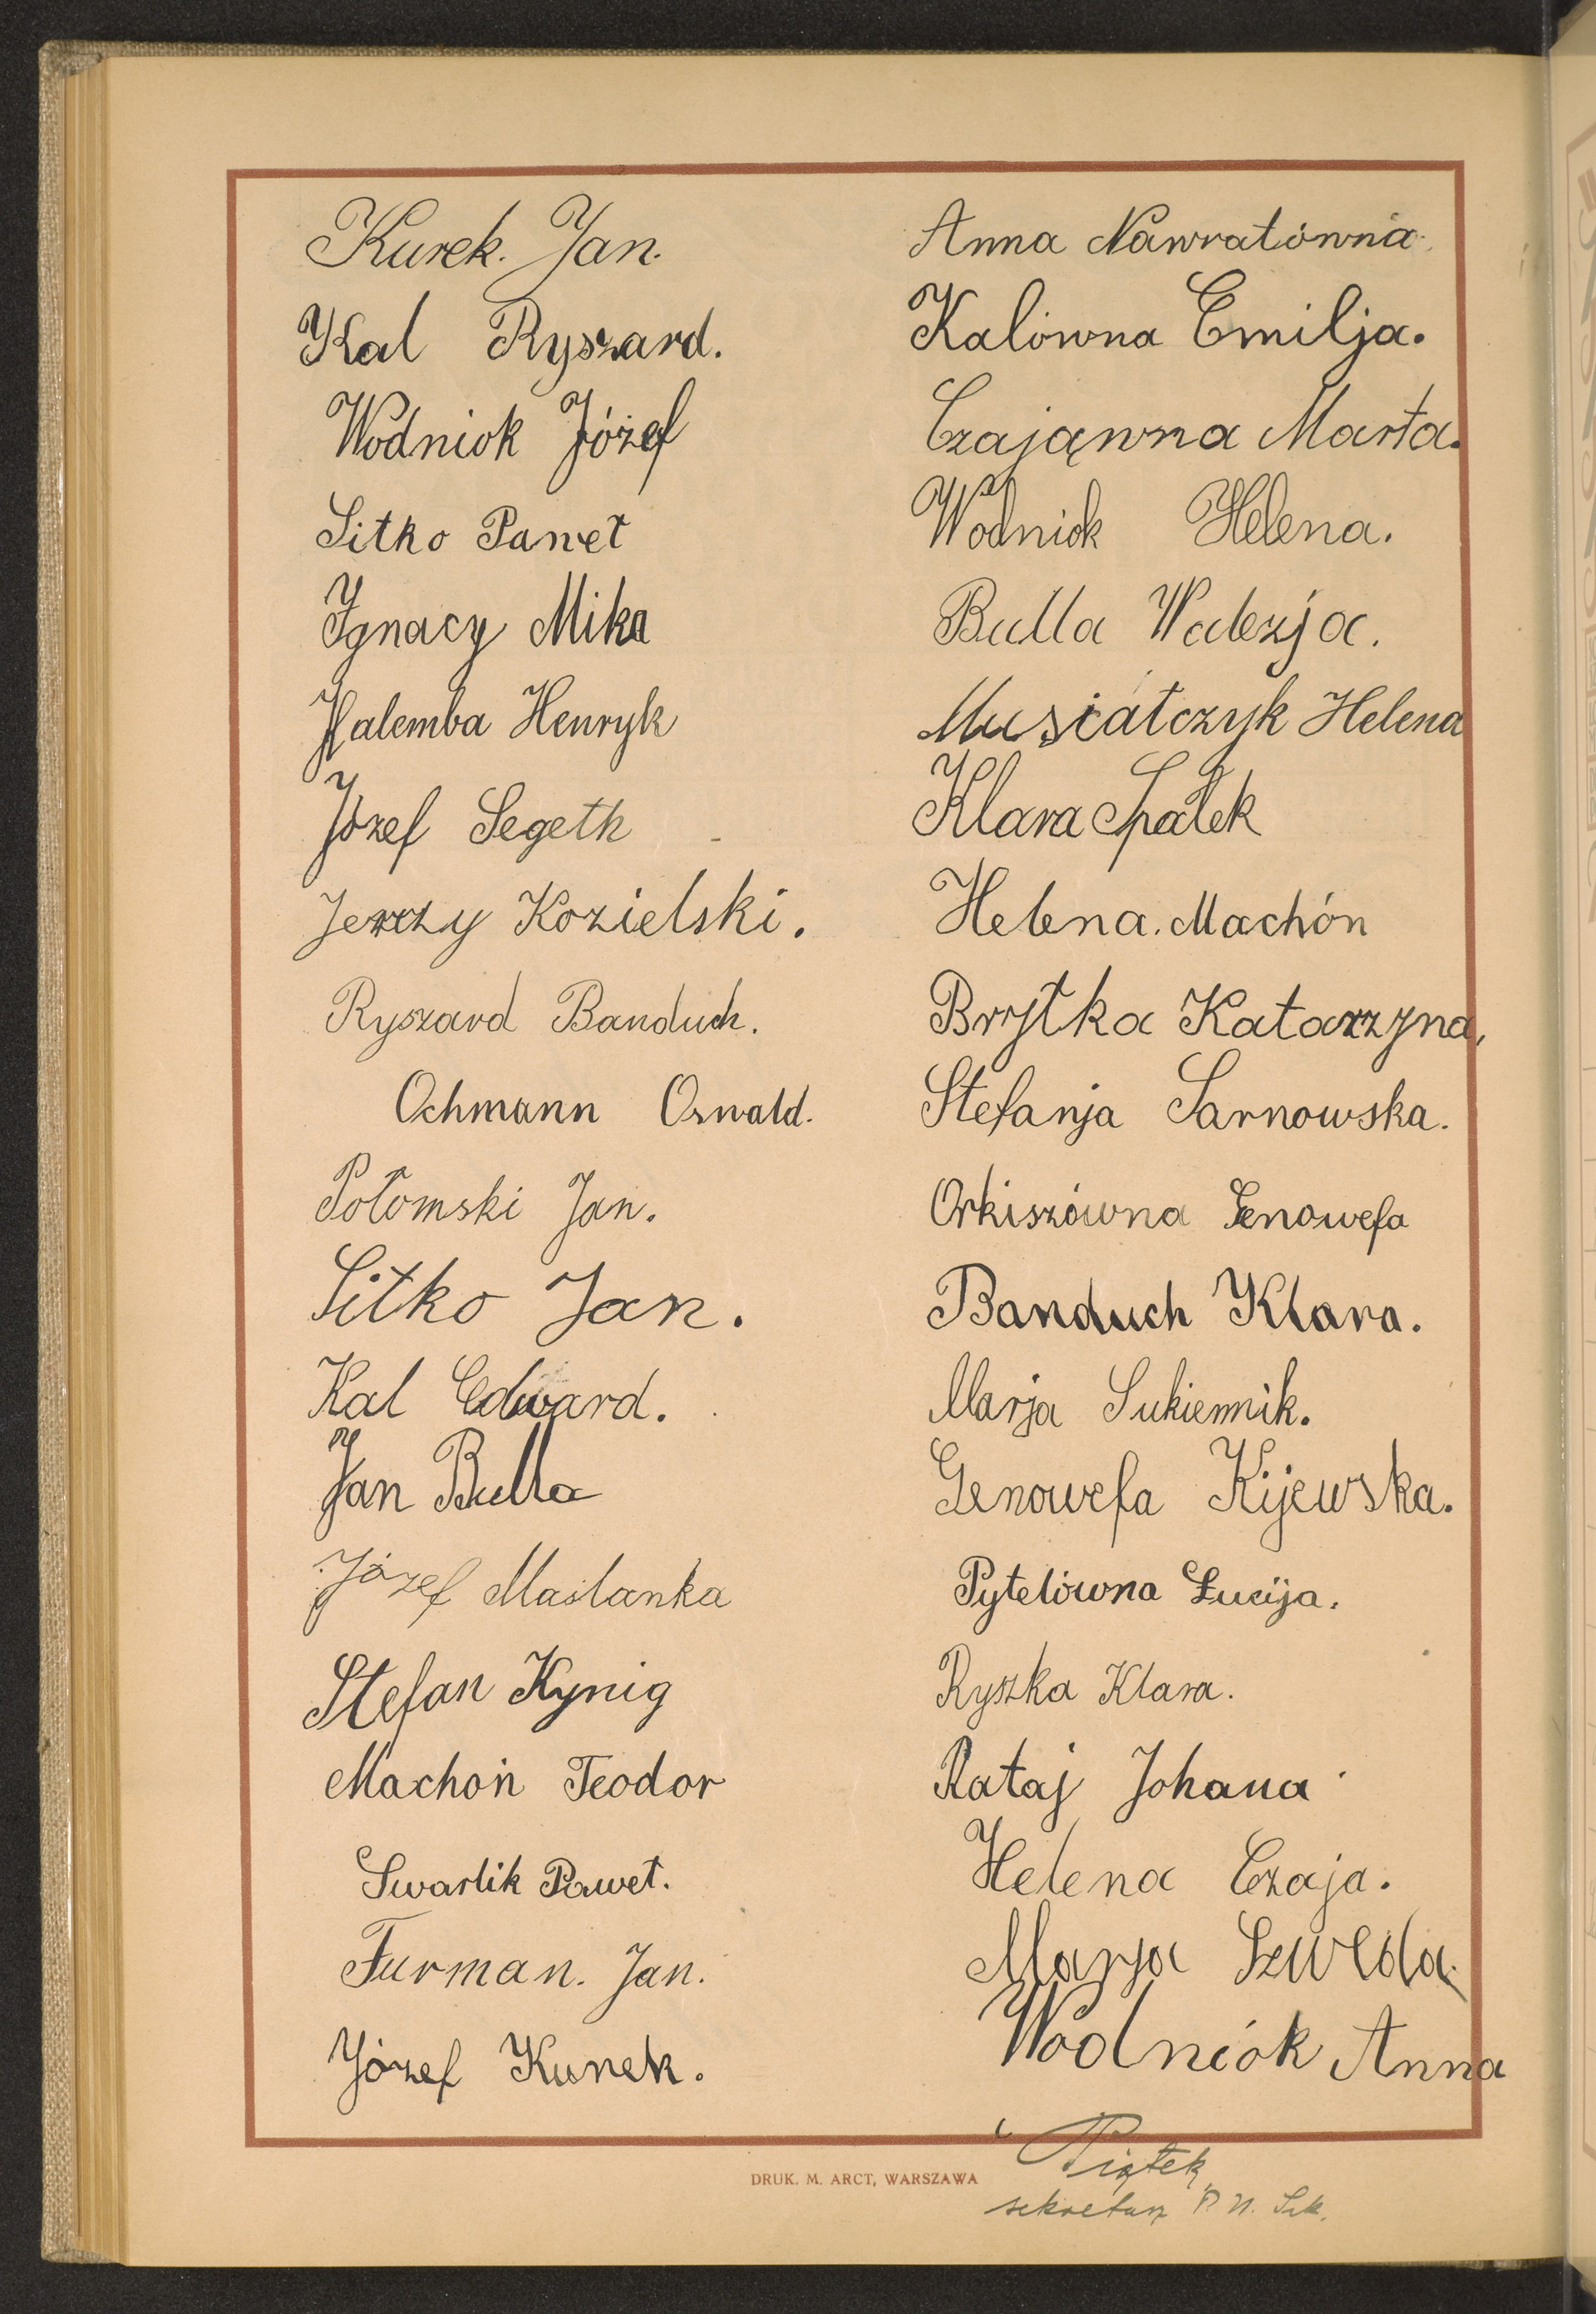 Kurek. Jan.
Kal Ryszard.
Wodniok Józef
Sitko Paweł
Ignacy Mika
Halemba Henryk
Józef Segeth
Jerzy Kozielski.
Ryszard Banduch.
Ochmann Oswald.
Połomski Jan.
Sitko Jan.
Kal Edward.
Jan Bulla
Józef Maślanka
Stefan Kynig
Machoń Teodor
Swarlik Paweł.
Furman. Jan.
Józef Kurek.
Anna Nawratówna
Kalówna Emilja.
Czająwna Marta.
Wodniok Helena.
Bulla Walezja.
Musiałczyk Helena
Klara Spałek
Helena. Machón
Brytka Katarzyna,
Stefanja Sarnowska.
Orkiszówna Genowefa
Banduch Klara.
Marja Sukiennik.
Genowefa Kijewska.
Pytelówna Łucija.
Ryszka Klara.
Rataj Johana
Helena Czaja.
Marja Szweda.
Wodniók Anna
Piątek
sekretarz
DRUK. M. ARCT, WARSZAWA